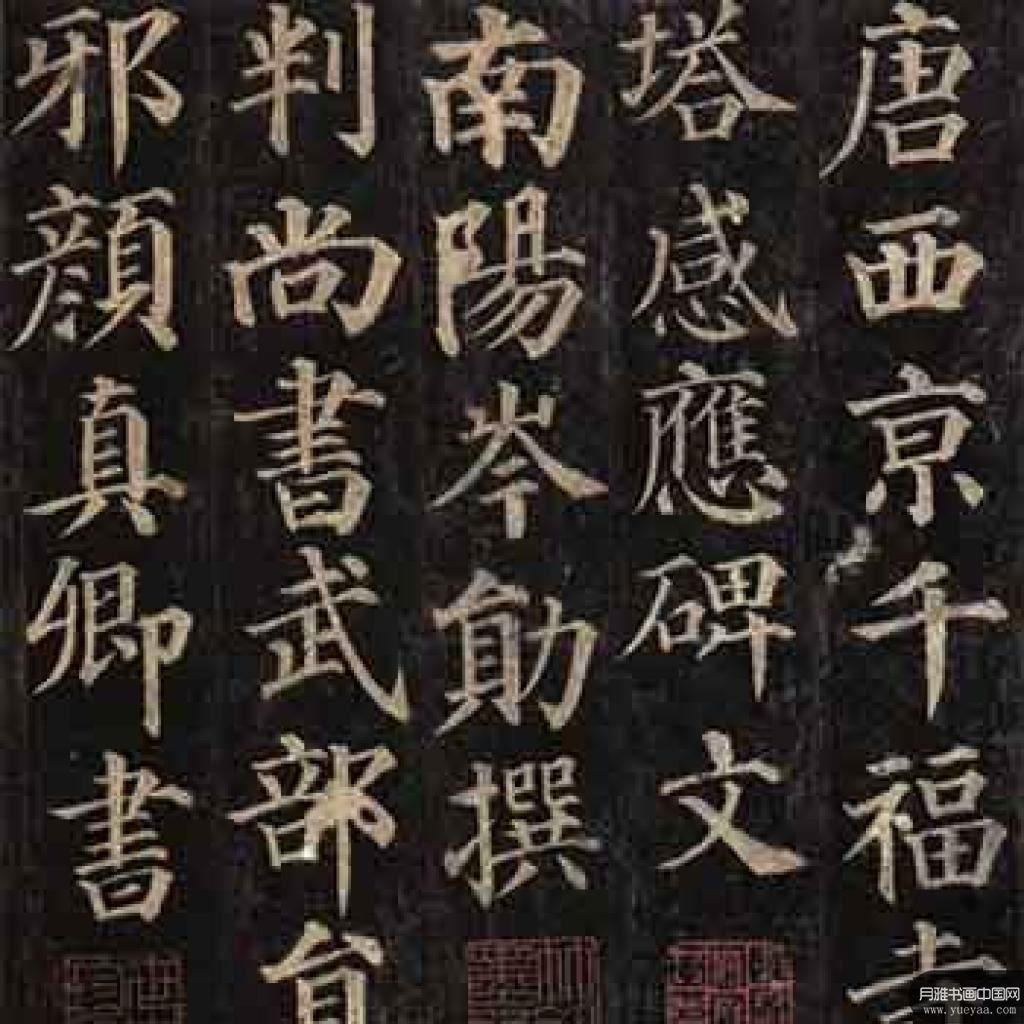 唐西亰千福寺
塔感應碑文
南陽岑勛撰
判尚書武部員
邪顏真卿書
月雅书画中国网
www.yueyaa.com